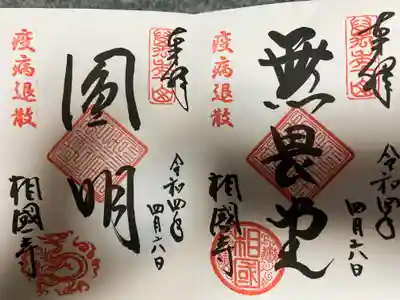 奉拝
無畏堂
令和四年
四月六日
相國寺
疫病退散
相國
奉拝
圓明
令和四年
四月六日
相國寺
疫病退散